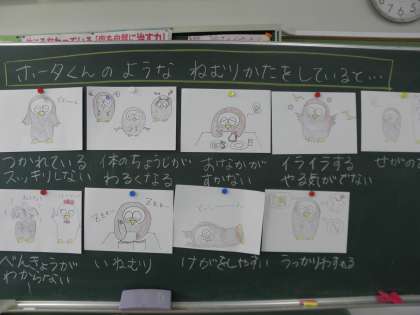 ホータくんのような ねむりかたをしていると…
つかれている
スッキリしない
体のちょうしが
わるくなる
おなかが
すかない
イライラする
やる気がでない
せがの
べんきょうが
わからない
いねむり
けがをしやすい
うっかりわすれる